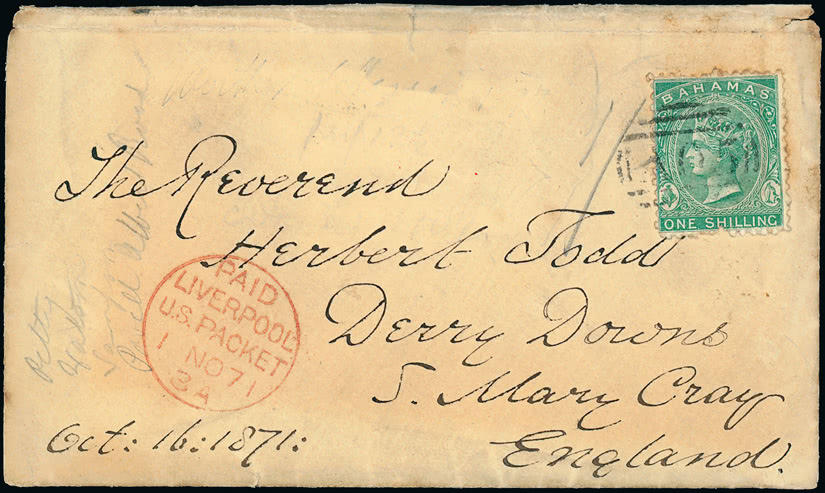 BAHAMAS
ONE SHILLING
The Reverend
Herbert Todd
Derry Downs
S. Mary Cray
England.
PAID
LIVERPOOL
U.S. PACKET
1 NO 71
3A
Oct: 16: 1871: